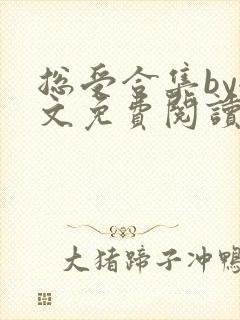 总受合集by
文免費閱讀
大猪蹄子冲鸭